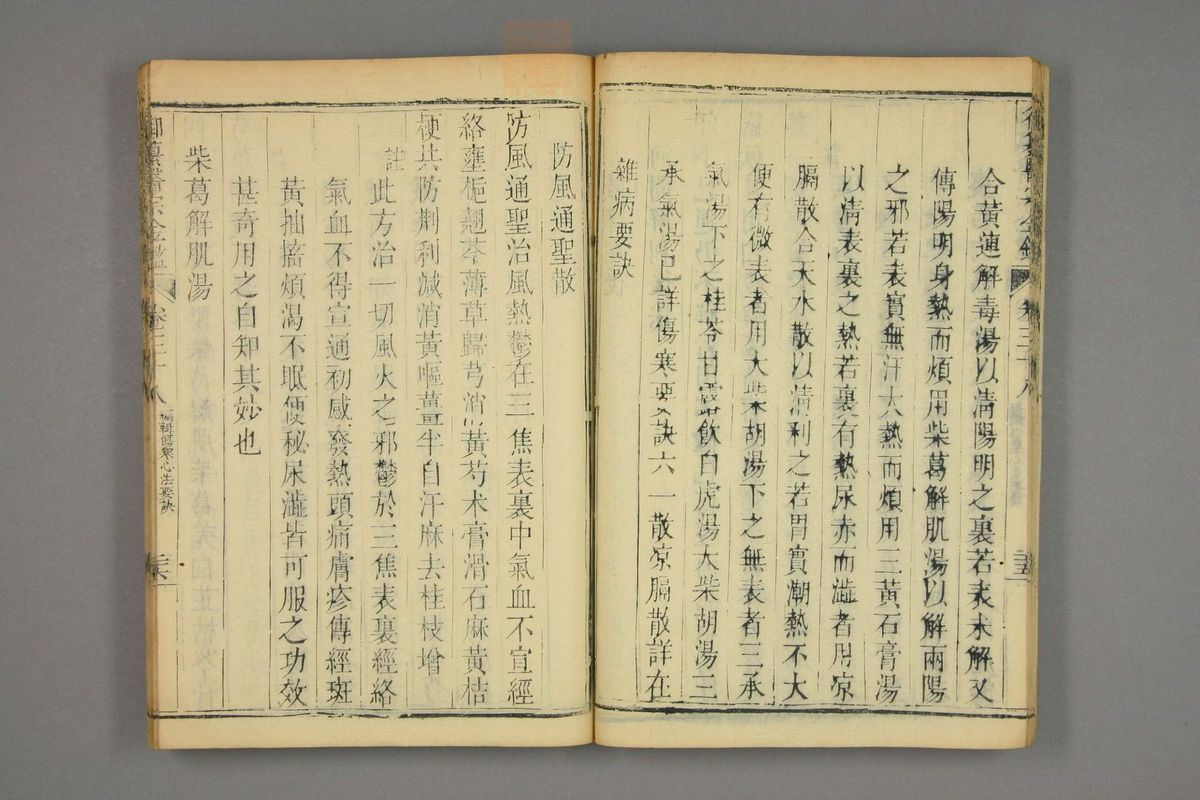 合黃連解毒湯以淸陽明之裏若表未解又
傳陽明身熱而煩用柴葛解肌湯以解兩陽
之邪若表實無汗大熱而煩用三黃石膏湯
以淸表裏之熱若裏有熱尿赤而澁者用凉
膈散合天水散以淸利之若胃實潮熱不大
便有微表者用大柴胡湯下之無表者三承
氣湯下之桂苓甘露飮白虎湯大柴胡湯三
承氣湯已詳傷寒要訣六一散凉膈散詳在
雜病要訣
防風通聖散
防風通聖治風熱鬱在三焦表裏中氣血不宣經
絡壅梔翹芩薄草歸芎消黃芍术膏滑石麻黃桔
梗共防荆利減消黃嘔薑半自汗麻去桂枝增
註
此方治一切風火之邪鬱於三焦表裏經絡
氣血不得宣通初感發熱頭痛膚疹傳經斑
黃抽搐煩渴不眠便秘尿澁皆可服之功效
甚奇用之自知其妙也
柴葛解肌湯
御纂醫宗金鑑
卷三十八
編輯傷寒心法要訣